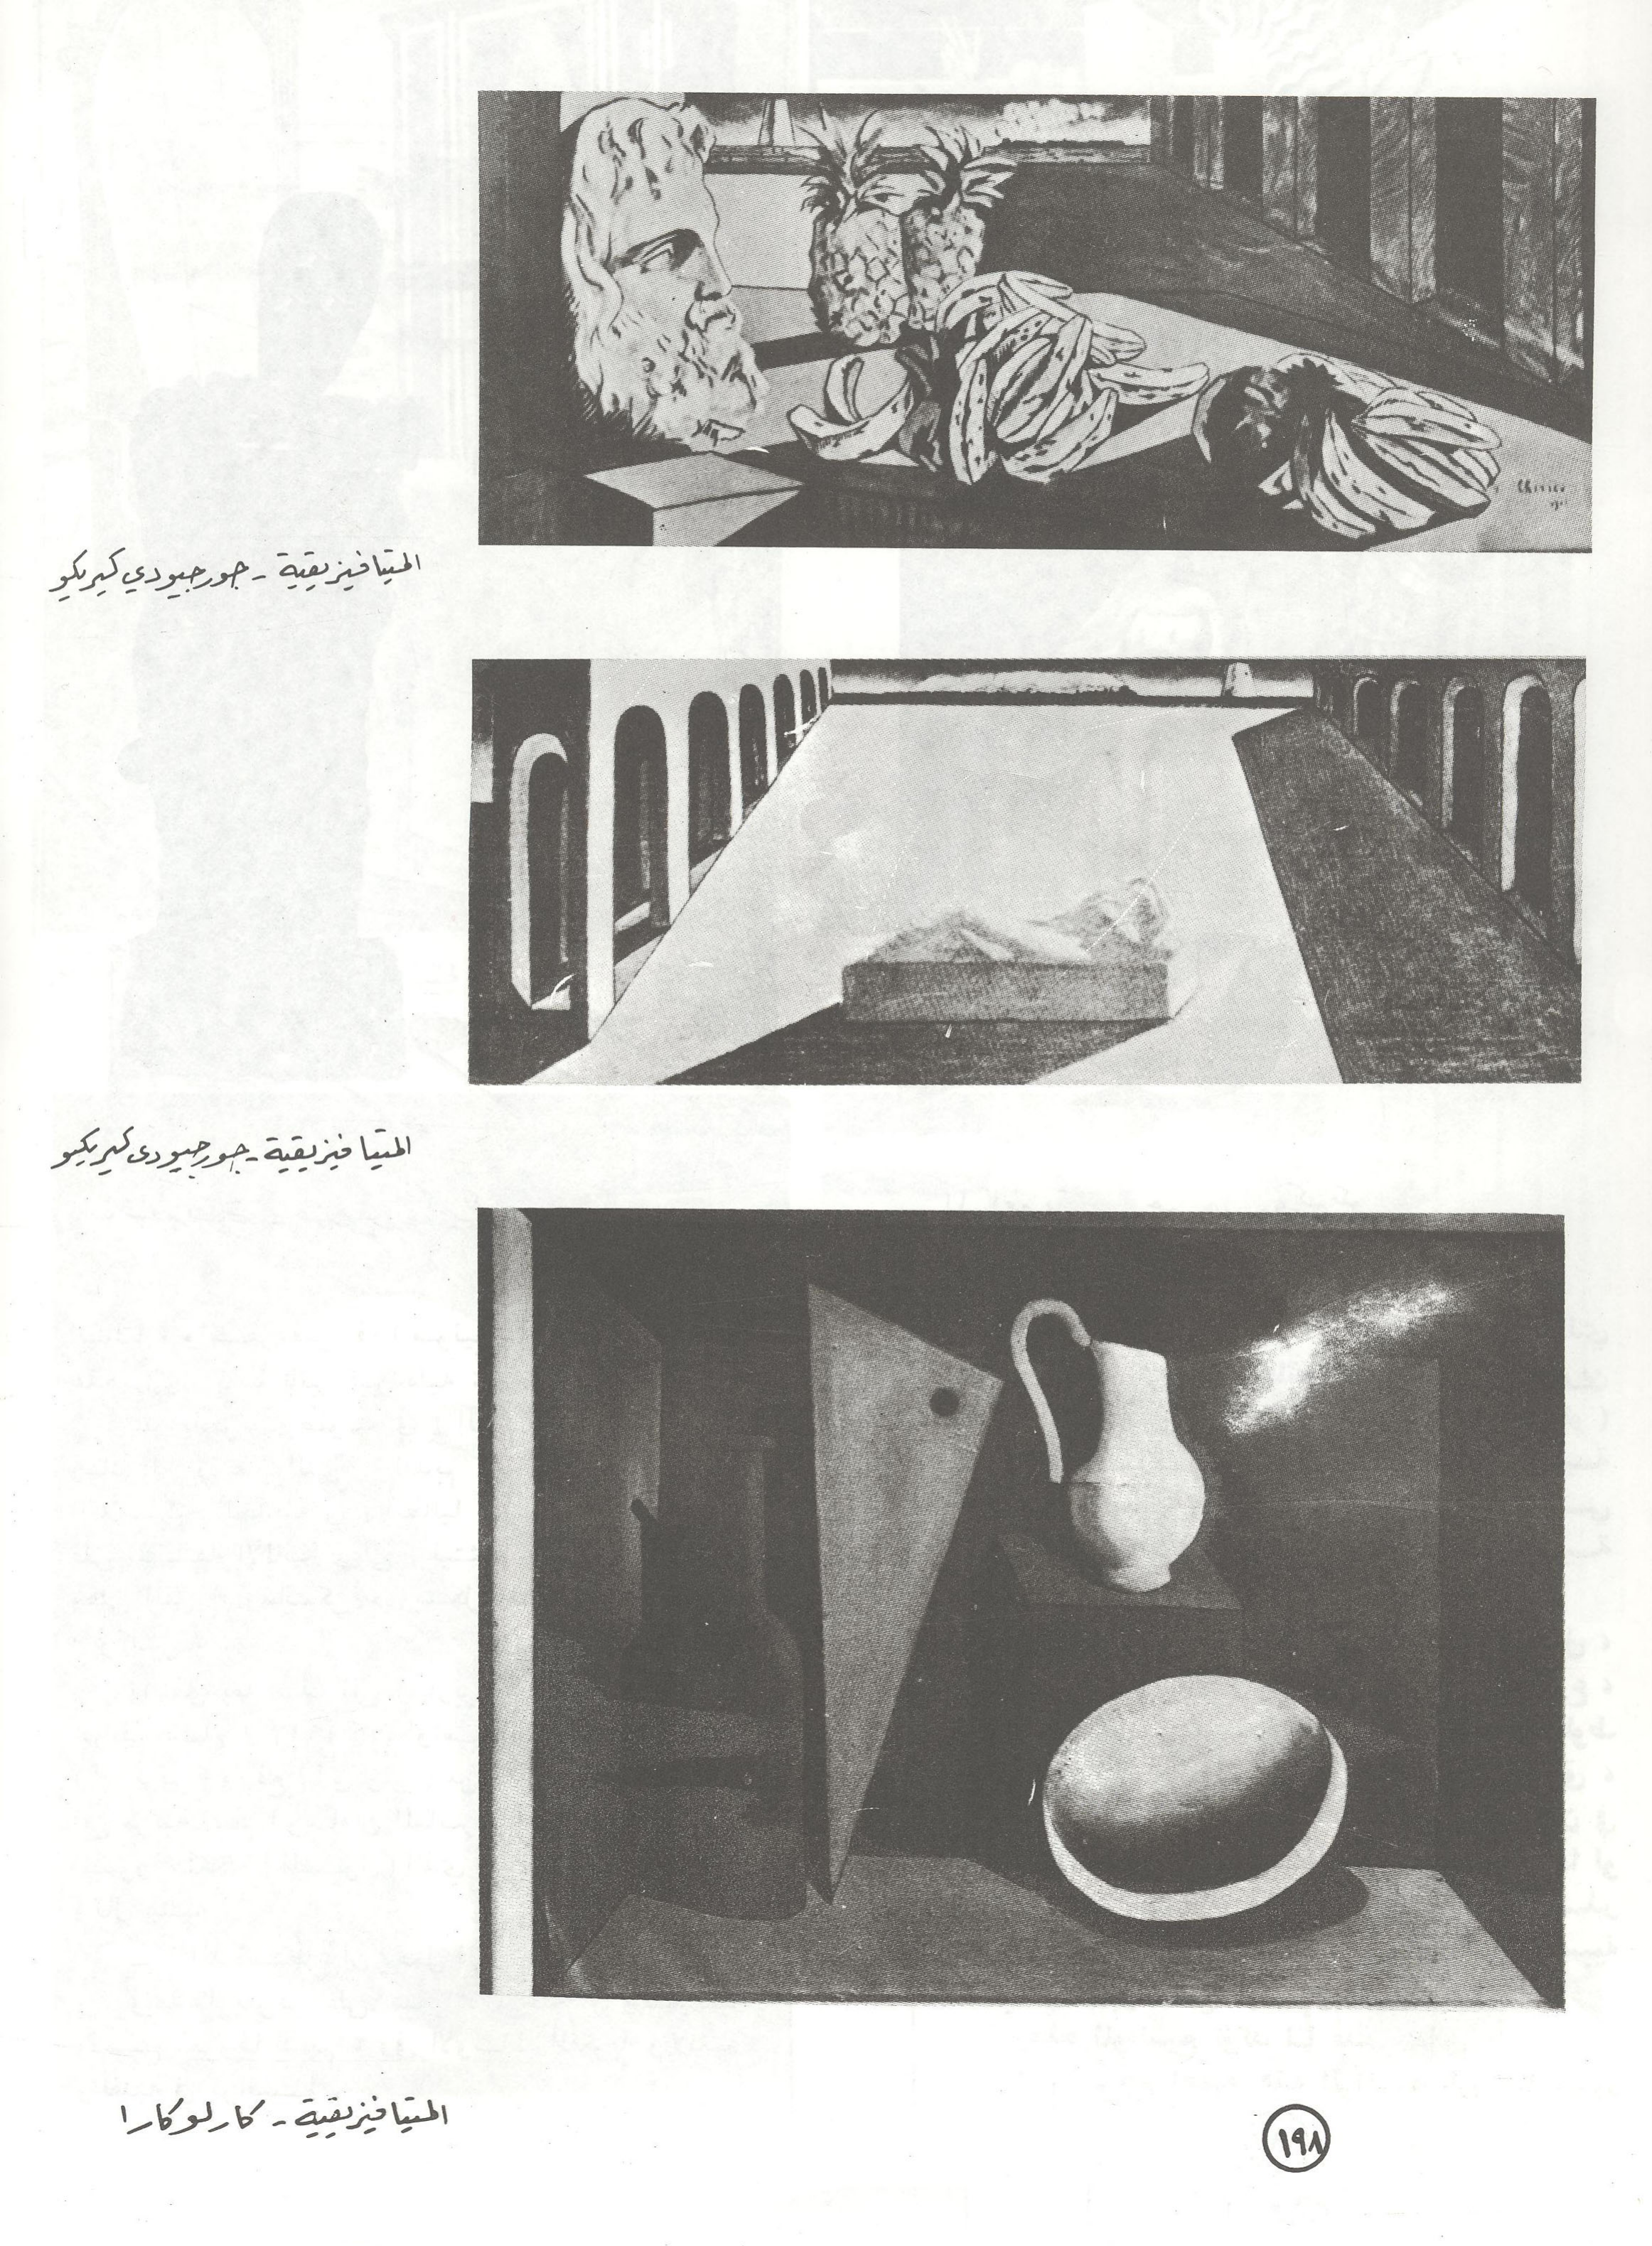 Chirico
المتيافيزيقية - جورجيودي كيريكو
المتيافيزيقية - جورجيودى كيريكو
المتيافيزيقية - كارلوكارا
١٩٨